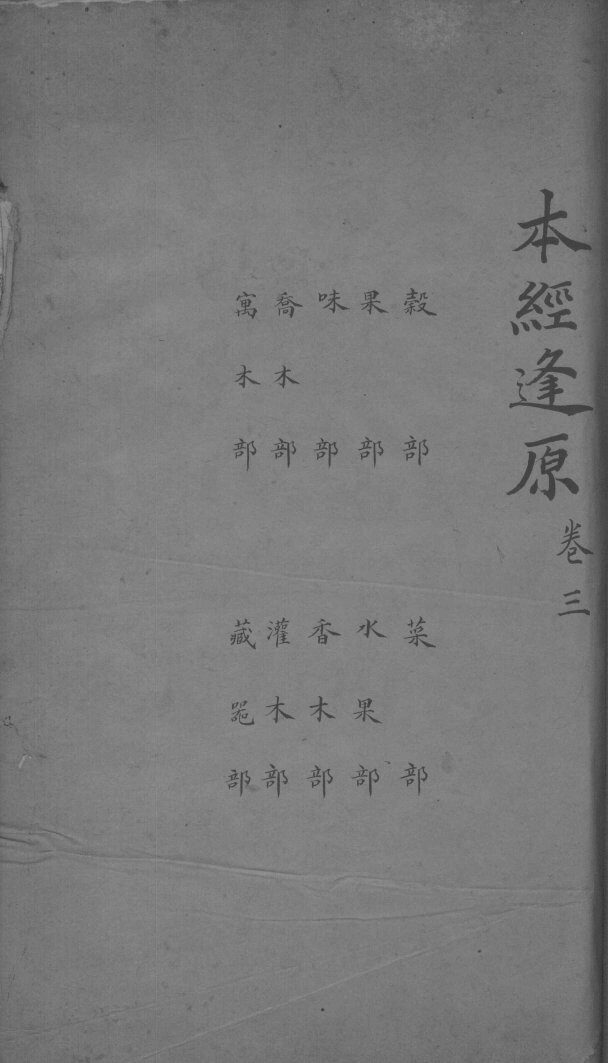 本經逢原卷三
穀部 菜部
果部 水果部
味部 香木部
喬木部 灌木部
寓木部 藏器部